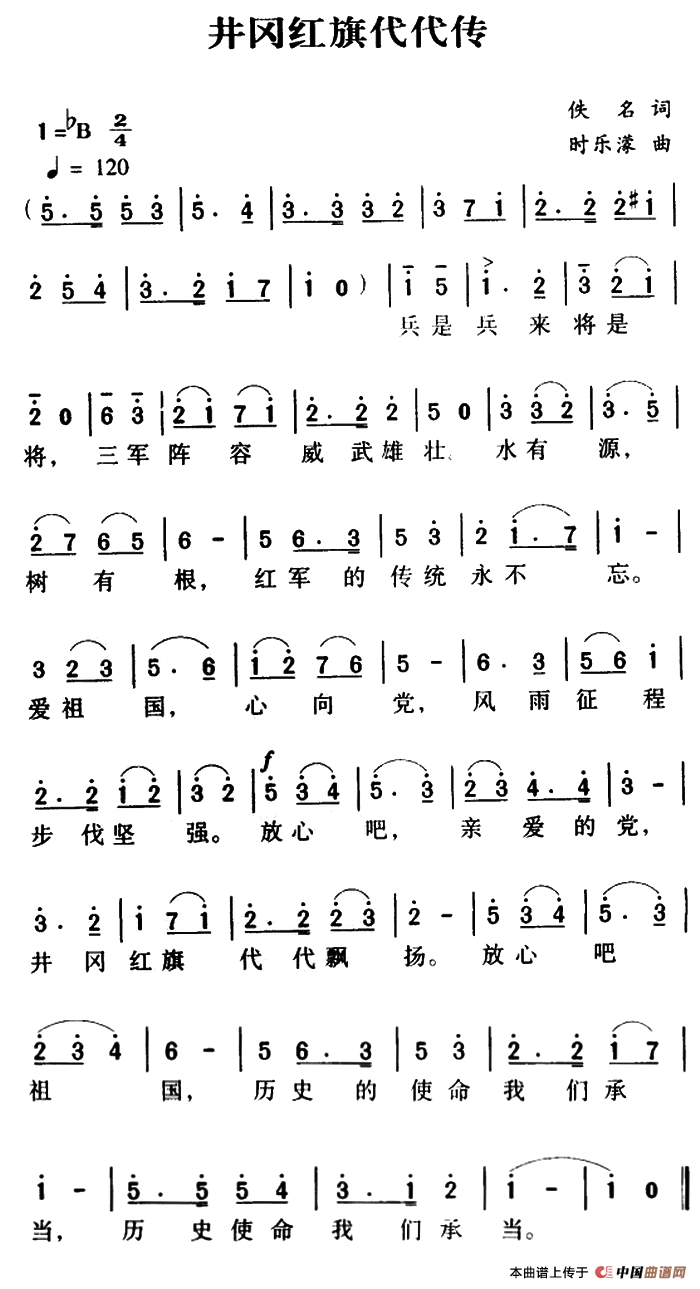 井冈红旗代代传
佚 名 词
1=♭B 2/4
时乐濛 曲
♩ = 120
(5. 5 5 3 | 5. 4 | 3. 3 3 2 | 3 7 1 | 2. 2 2 #1 |
2 5 4 | 3. 2 1 7 | 1 0 ) | 1 5 | 1. 2 | 3 2 1 |
兵是兵 来将是
2 0 | 6 3 | 2 1 7 1 | 2. 2 2 | 5 0 | 3 3 2 | 3. 5 |
将, 三军阵 容 威 武雄壮、 水有 源,
2 7 6 5 | 6 - | 5 6. 3 | 5 3 | 2 1. 7 | 1 - |
树 有 根, 红军 的 传统 永不 忘。
3 2 3 | 5. 6 | 1 2 7 6 | 5 - | 6. 3 | 5 6 1 |
爱祖 国, 心 向 党, 风 雨征 程
f
2. 2 1 2 | 3 2 | 5 3 4 | 5. 3 | 2 3 4. 4 | 3 - |
步 伐坚 强。 放心 吧, 亲 爱的党,
3. 2 | 1 7 1 | 2. 2 2 3 | 2 - | 5 3 4 | 5. 3 |
井 冈 红旗 代 代飘 扬。 放心 吧
2 3 4 | 6 - | 5 6. 3 | 5 3 | 2. 2 1 7 |
祖 国, 历史 的 使命 我 们 承
1 - | 5. 5 5 4 | 3. 1 2 | 1 - | 1 0 ||
当, 历 史使命 我 们承 当。
本曲谱上传于 中国曲谱网